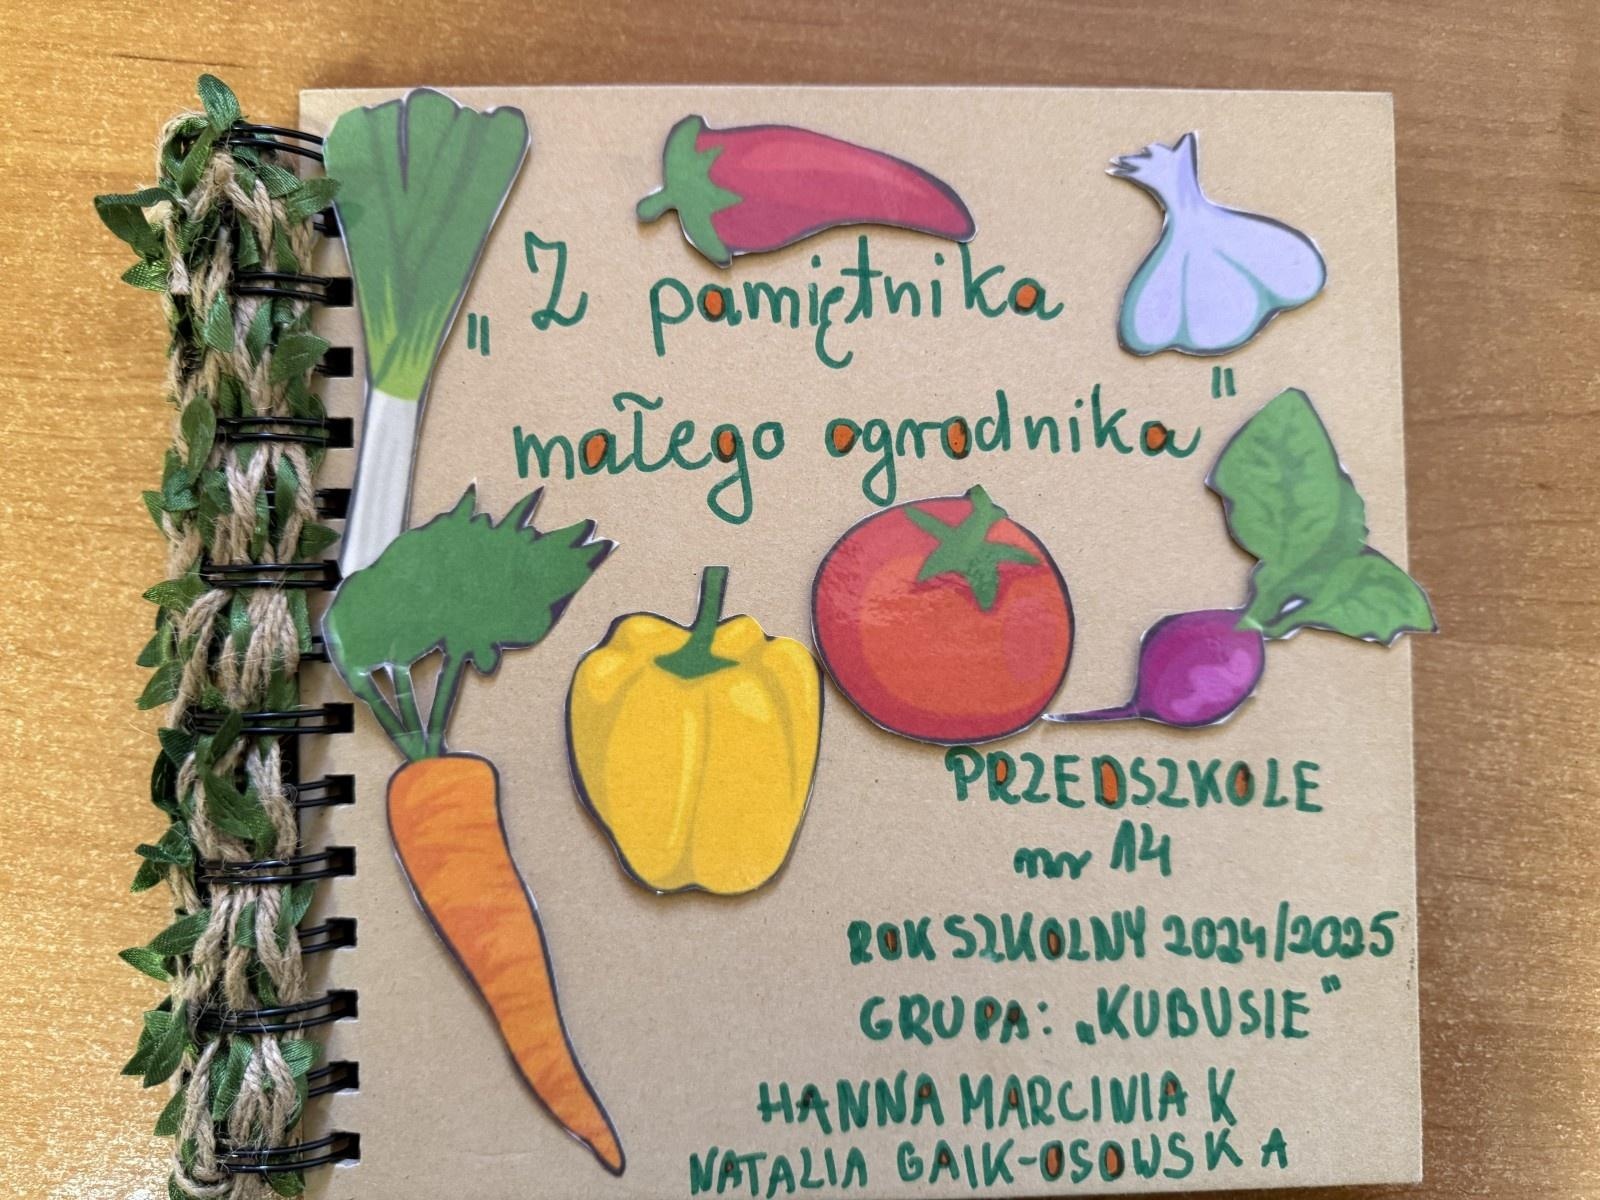 „Z pamiętnika
małego ogrodnika"
PRZEDSZKOLE
nr 14
ROK SZKOLNY 2024/2025
GRUPA: „KUBUSIE"
HANNA MARCINIAK
NATALIA GAIK-OSOWSKA